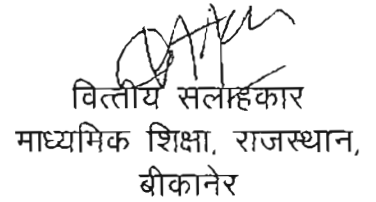 वित्तीय सलाहकार
माध्यमिक शिक्षा, राजस्थान,
बीकानेर